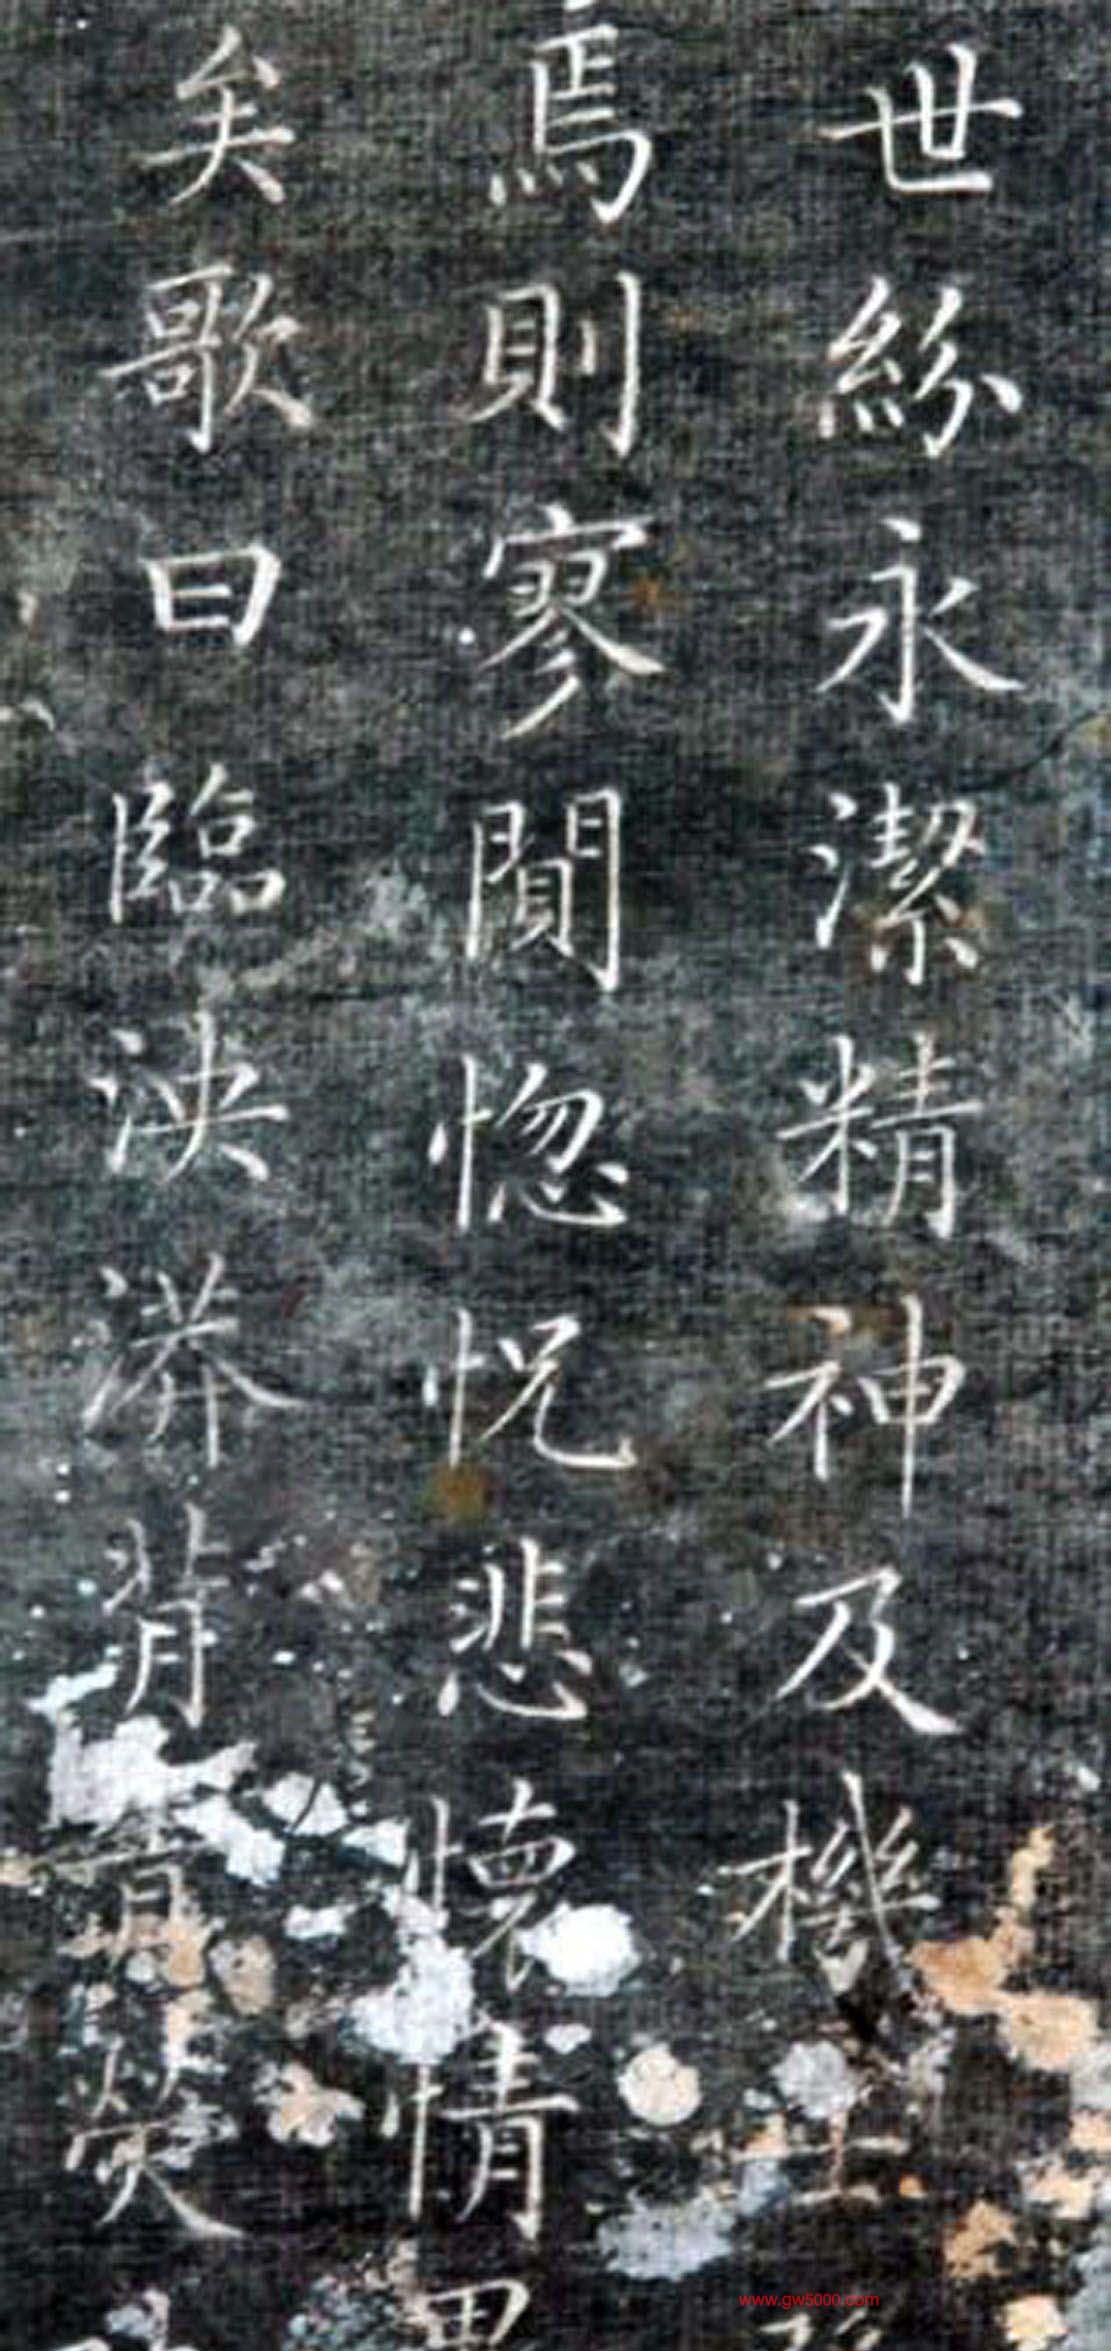 世紛永潔精神及機
焉則寥閴惚怳悲懷情思
矣歌曰臨泱漭背青熒
www.gw5000.com